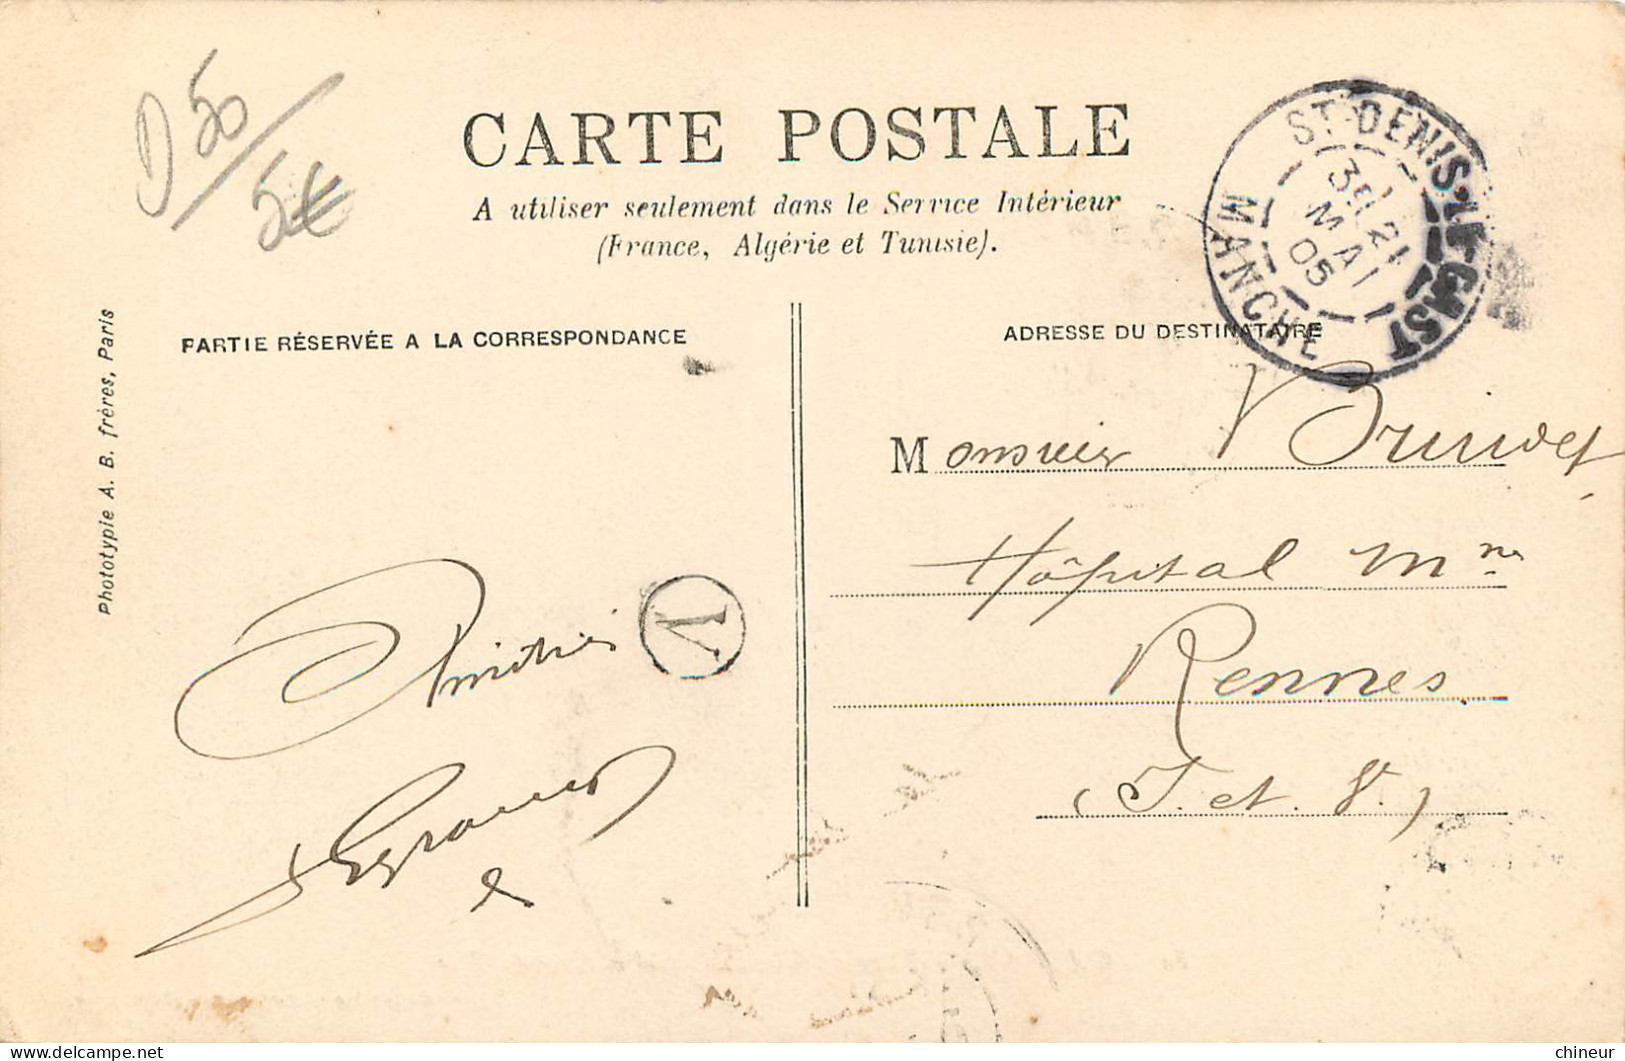 D 50
5€
CARTE POSTALE
A utiliser seulement dans le Service Intérieur
(France, Algérie et Tunisie).
ST-DENIS-LE-GAST
21
MAI
05
MANCHE
PARTIE RÉSERVÉE A LA CORRESPONDANCE
ADRESSE DU DESTINATAIRE
Phototypie A. B. frères, Paris
Monsieur
Hôpital Mre
Rennes
(I. et V.)
Amitiés
A
chineur